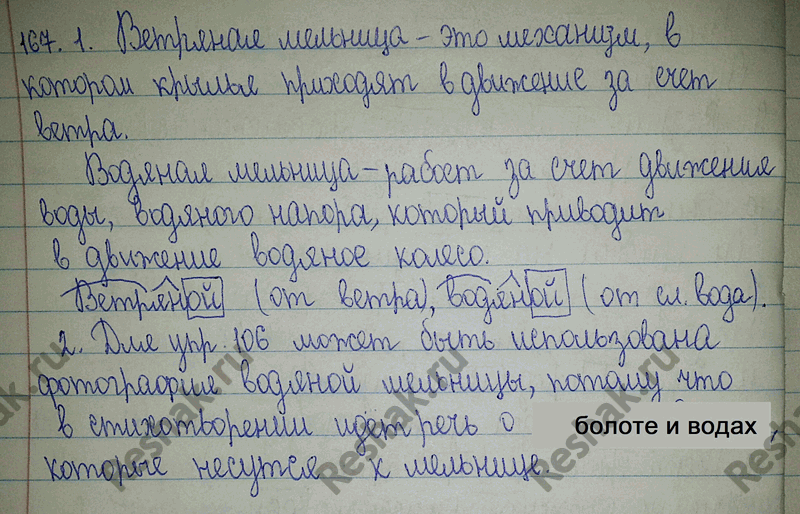 167. 1. Ветряная мельница – это механизм, в
котором крылья приходят в движение за счет
ветра.
Водяная мельница – рабоет за счет движения
воды, водяного напора, который приводит
в движение водяное колесо.
Ветряной (от ветра), водяной (от сл. вода).
2. Для упр. 106 может быть использована
фотография водяной мельницы, потому что
в стихотворении идёт речь о болоте и водах,
которые несутся к мельнице.
Reshak.ru
Reshak.ru
Reshak.ru
Reshak.ru